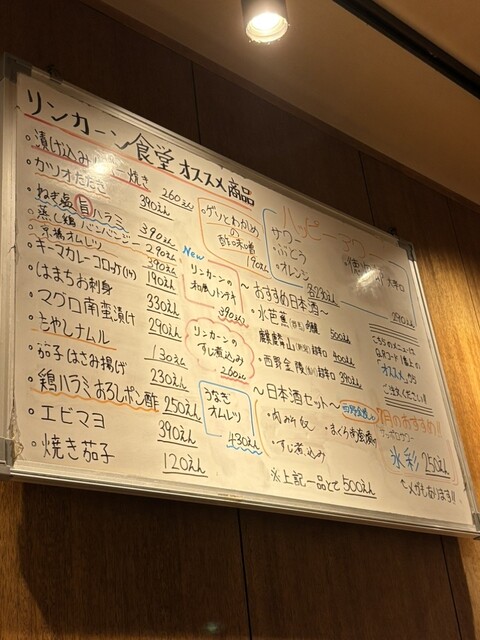 リンカーン食堂 オススメ商品
・漬け込み 焼き 260えん
・カツオたたき 390えん
・ねぎ塩旨ハラミ 390えん
・蒸し鶏バンバンジー 290えん
・京橋オムレツ 390えん
・キーマカレーコロッケ(1ケ) 190えん
・はまちお刺身 330えん
・マグロ南蛮漬け 290えん
・もやしナムル 130えん
・茄子はさみ揚げ 230えん
・鶏ハラミおろしポン酢 250えん
・エビマヨ 390えん
・焼き茄子 120えん
・ゲソとわかめ
の
酢味噌
190えん
New
リンカーンの
和風トンテキ
390えん
リンカーンの
すじ煮込み
260えん
うなぎ
オムレツ
430えん
ハッピー
サワー
・ぶどう
・オレンジ
323えん
大辛口
290えん
〜おすすめ日本酒〜
・水芭蕉 500えん
麒麟山 超辛口 400えん
・西野金陵 超辛口 390えん
〜日本酒セット〜
・肉みそ奴
・まぐろ南蛮漬け
・すじ煮込み
※上記一品とで 500えん
こちらのメニューは
QRコード1番上の
「オススメ」から
ご注文ください!!
月のおすすめ!!
サッポロサワー
氷彩 250えん
メガもあります!!